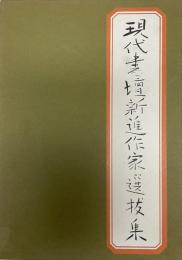 現代書壇新進作家選抜集